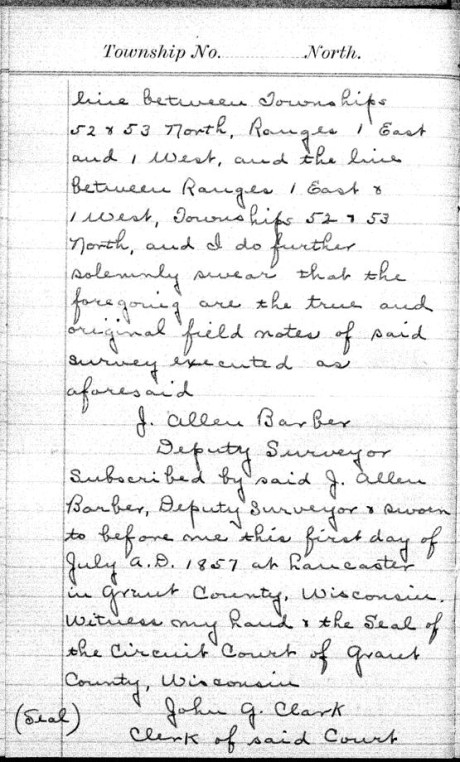 Township No. North.
line between Townships
52 & 53 North, Ranges 1 East
and 1 West, and the line
between Ranges 1 East &
1 West, Townships 52 & 53
North, and I do further
solemnly swear that the
foregoing are the true and
original field notes of said
survey executed as
aforesaid
J. Allen Barber
Deputy Surveyor
Subscribed by said J. Allen
Barber, Deputy Surveyor & sworn
to before me this first day of
July A.D. 1857 at Lancaster
in Grant County, Wisconsin.
Witness my hand & the Seal of
the Circuit Court of Grant
County, Wisconsin
(Seal) John G. Clark
Clerk of said Court